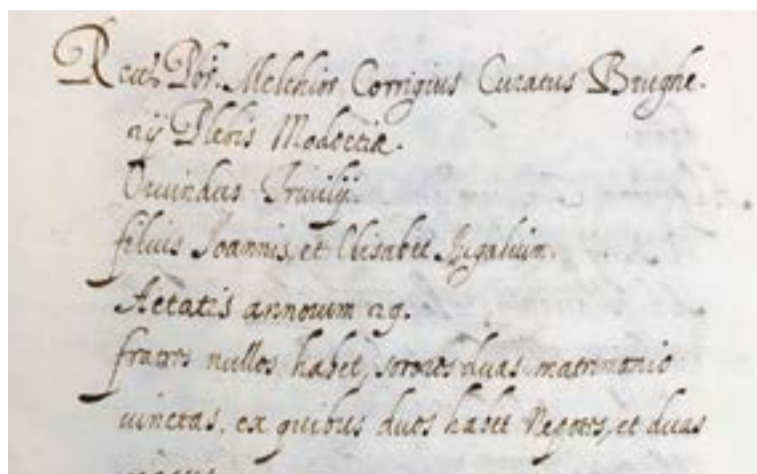 Reude Pbr. Melchior Corrigius Curatus Brughe.
rij Plebis Modoetiæ.
Oriundus Trivilij.
filius Joannis, et Elisabet Jugalium.
Aetatis annorum 29.
fratres nullos habet, sorores duas matrimonio
iunctas, ex quibus duos habet Nepotes, et duas